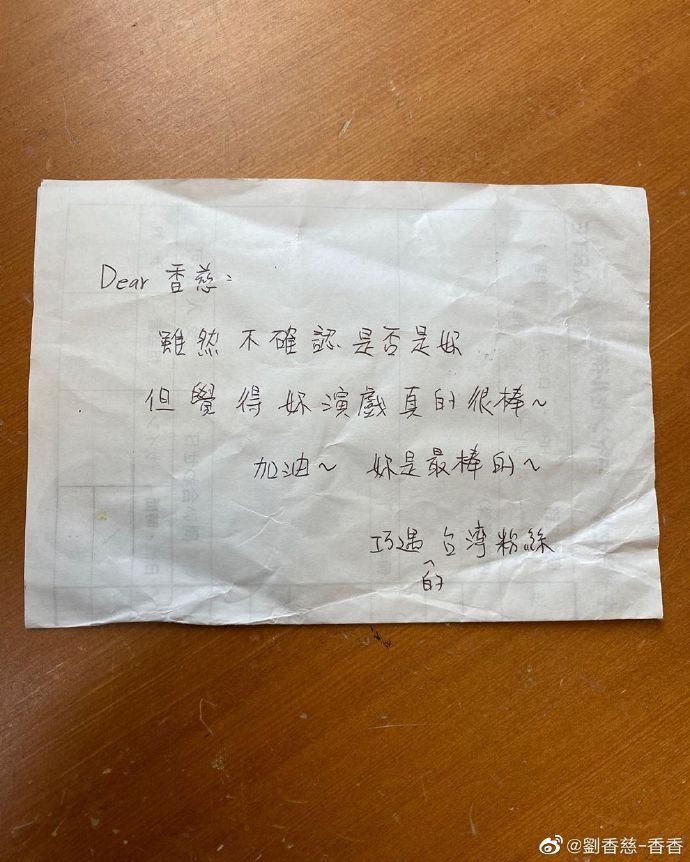 Dear 香慈：
雖然不確認是否是妳
但覺得妳演戲真的很棒~
加油~ 妳是最棒的~
巧遇的台湾粉絲
@劉香慈-香香